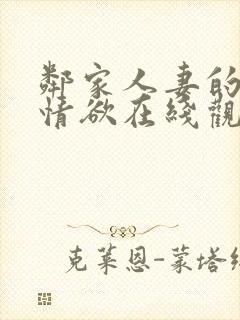 鄰家人妻的
情欲在綫觀
克萊恩-蒙塔